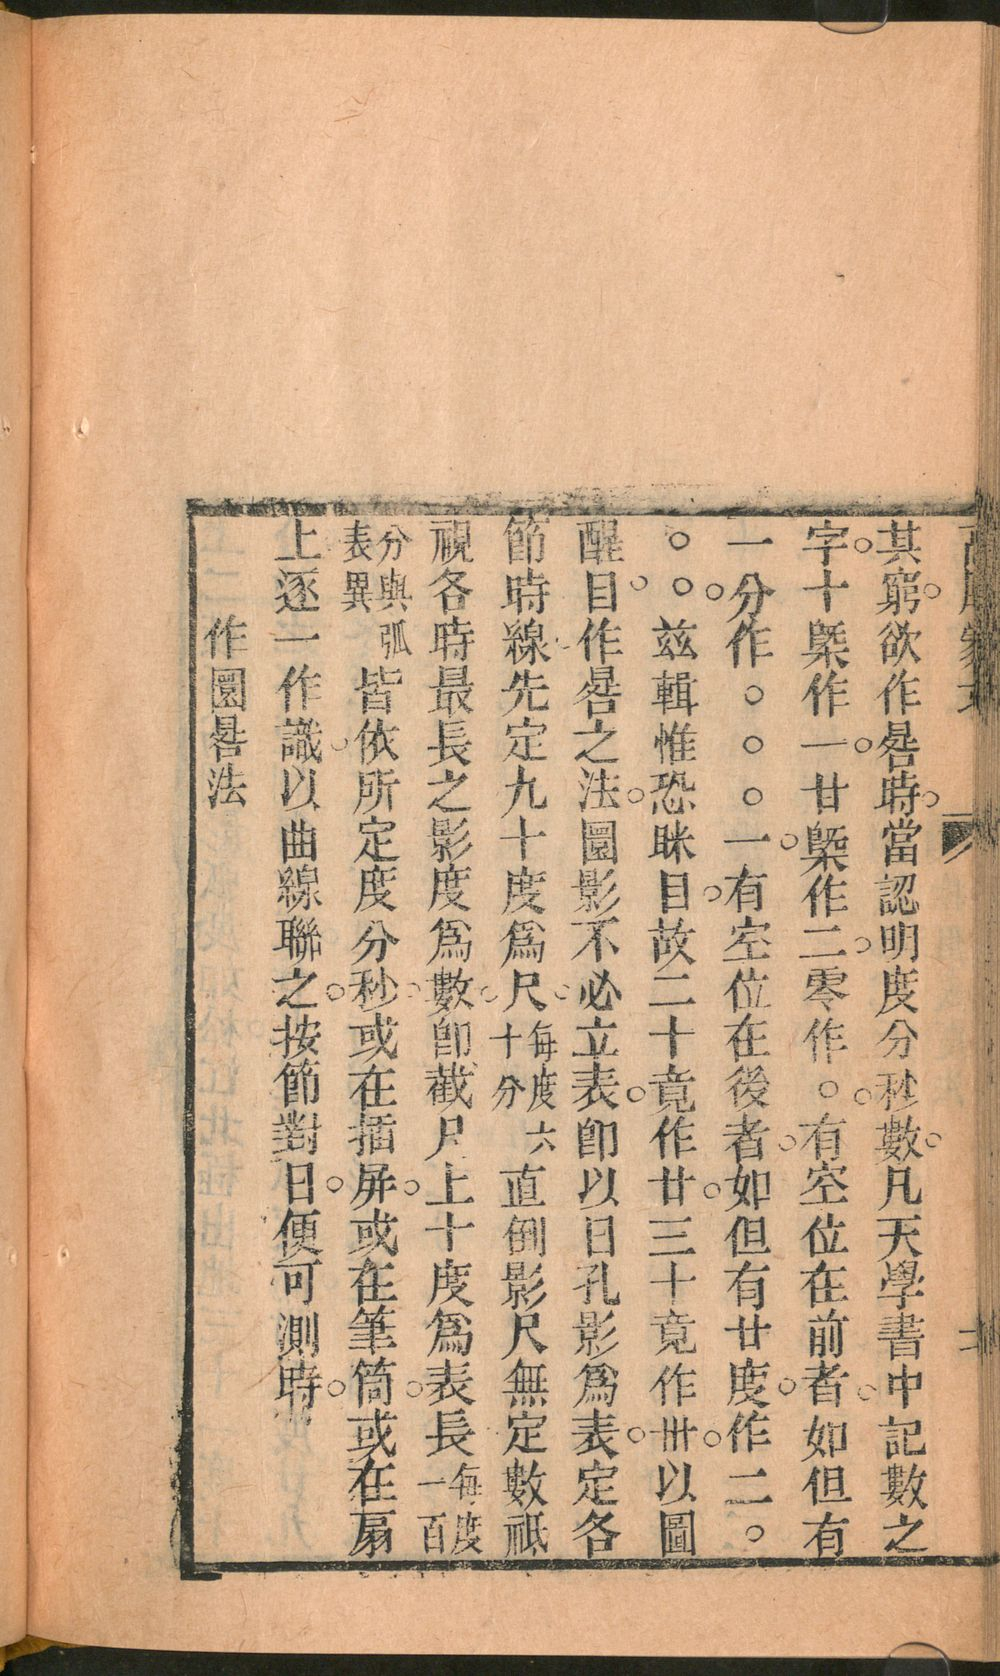 其窮欲作晷時當認明度分秒數凡天學書中記數之
字十槩作一廿槩作二零作〇有空位在前者如但有
一分作〇〇〇一有空位在後者如但有廿度作二〇
〇〇茲輯惟恐眯目故二十竟作廿三十竟作卅以圖
醒目作晷之法圓影不必立表卽以日孔影爲表定各
節時線先定九十度爲尺每度六十分直倒影尺無定數祗
視各時最長之影度爲數卽截尺上十度爲表長每度一百
分與弧表異皆依所定度分秒或在插屏或在筆筒或在扇
上逐一作識以曲線聯之按節對日便可測時
作圓晷法